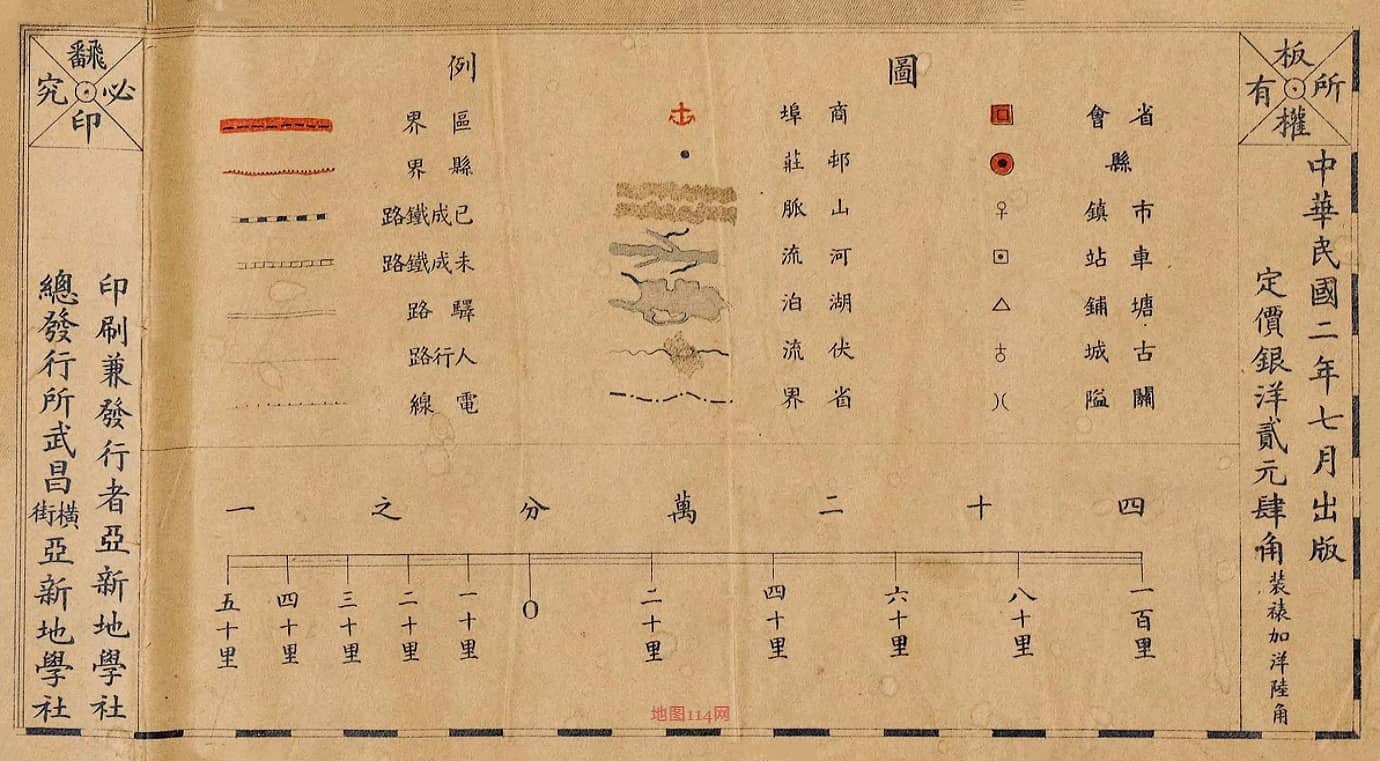 板權所有
中華民國二年七月出版
定價銀洋貳元肆角裝裱加洋陸角
圖例
省會
縣
市鎮
車站
塘鋪
古城
關隘
商埠
邨莊
山脈
河流
湖泊
伏流
省界
區界
縣界
已成鐵路
未成鐵路
驛路
人行路
電線
四十二萬分之一
一百里
八十里
六十里
四十里
二十里
0
一十里
二十里
三十里
四十里
五十里
飜印必究
印刷兼發行者亞新地學社
總發行所武昌橫街亞新地學社
地图114网